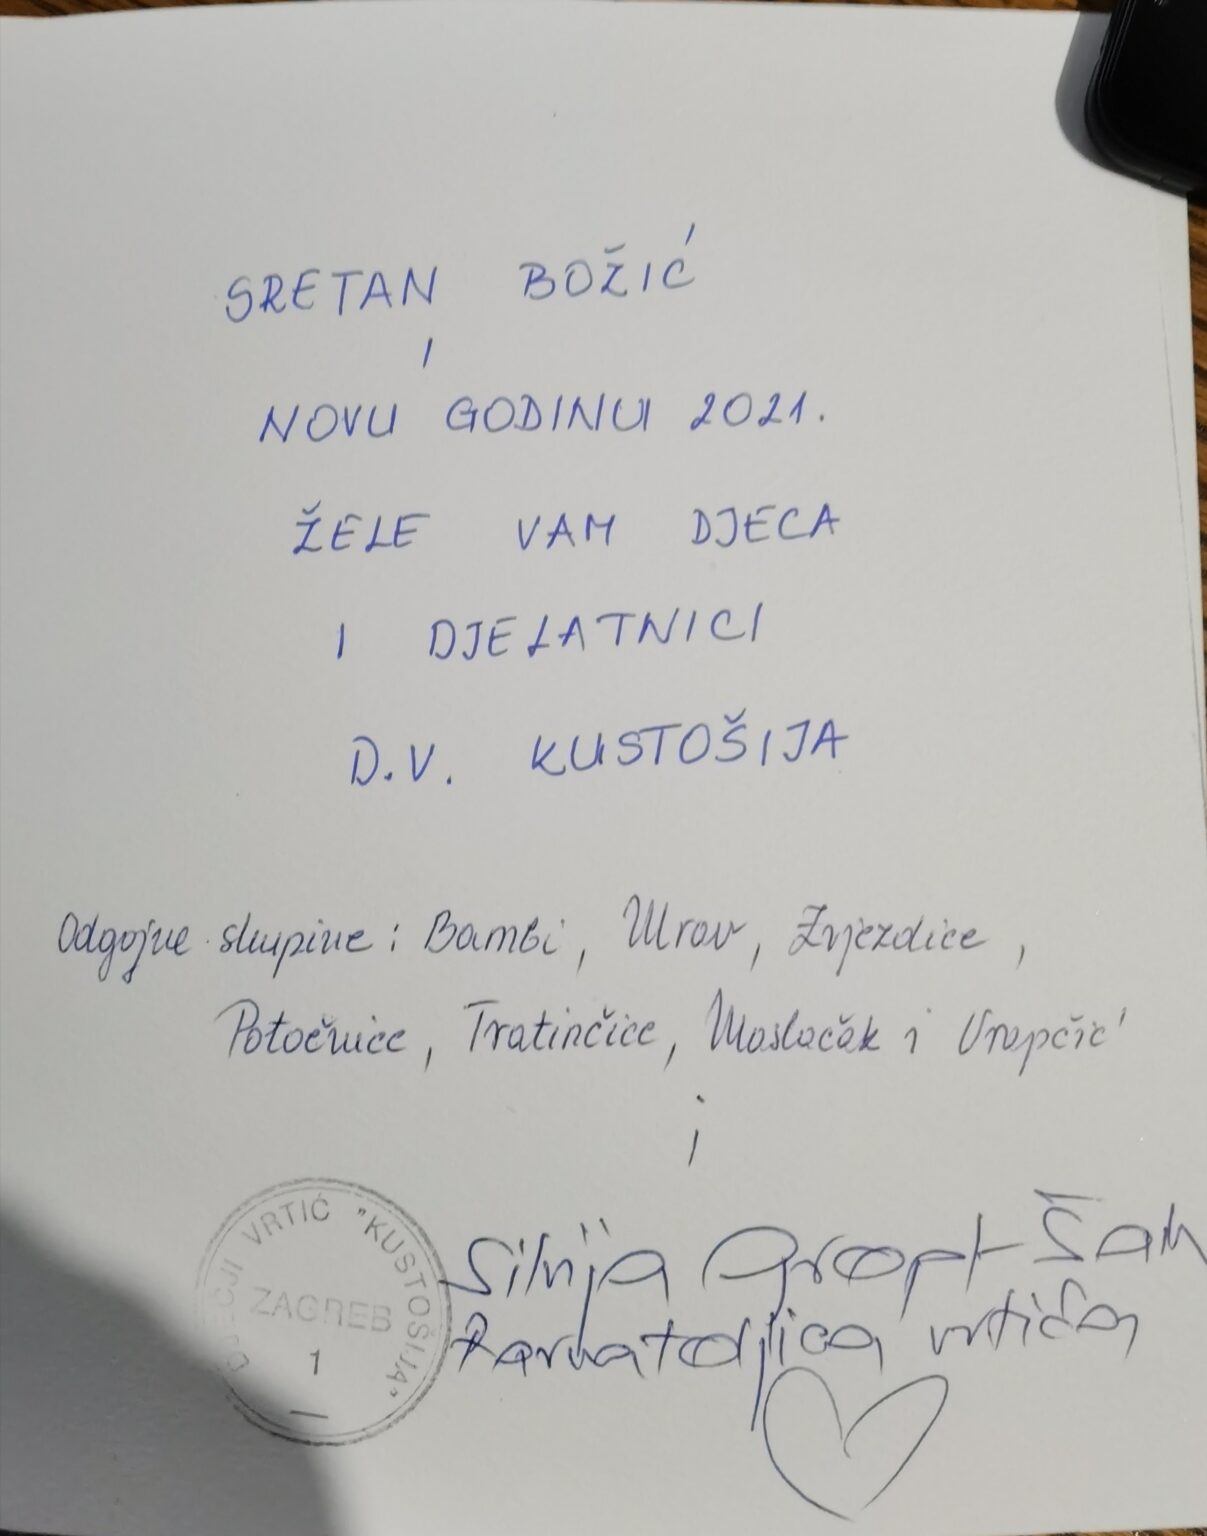 SRETAN BOŽIĆ
I
NOVU GODINU 2021.
ŽELE VAM DJECA
I DJELATNICI
D.V. KUSTOŠIJA
Odgojne skupine: Bambi, Mrav, Zvjezdice,
Potočnice, Tratinčice, Maslačak i Vrapčić
i
DJEČJI VRTIĆ "KUSTOŠIJA"
ZAGREB
1
Silvija Šam
Ravnateljica vrtića